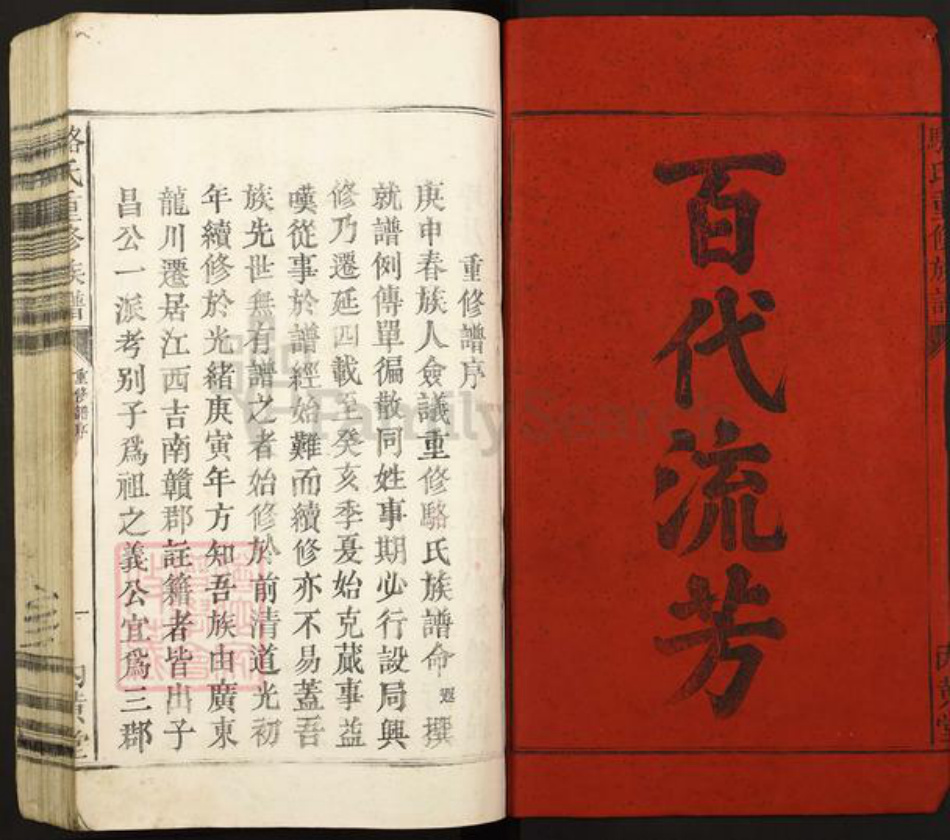 百代流芳
重修譜序
庚申春族人僉議重修駱氏族譜命遐撰
就譜例傳單徧散同姓事期必行設局興
修乃遷延四載至癸亥季夏始克蕆事益
嘆從事於譜經始難而續修亦不易蓋吾
族先世無有譜之者始修於前清道光初
年續修於光緒庚寅年方知吾族由廣東
龍川遷居江西吉南贛郡註籍者皆出子
昌公一派考别子爲祖之義公宜爲三郡
駱氏重修族譜
重修譜序
一
內黃堂
FamilySearch